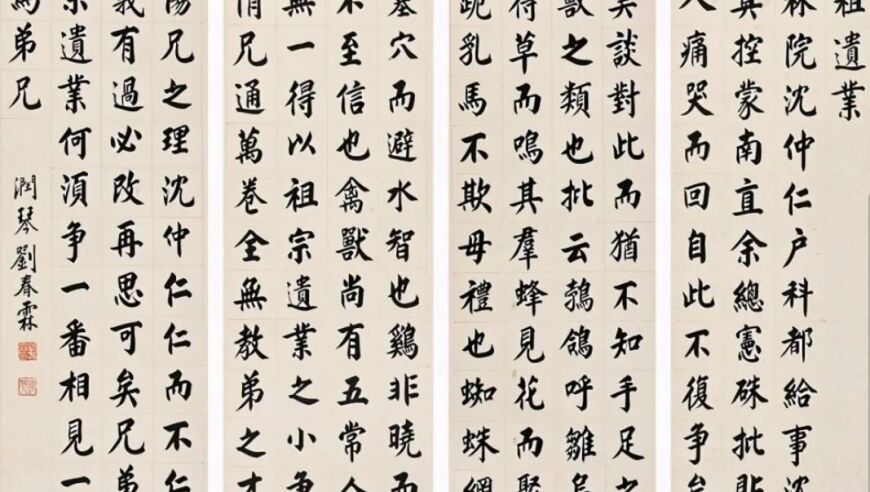 祖遺業
林院沈仲仁户科都給事沈
其控蒙南直余總憲硃批貼
人痛哭而回自此不復争矣
矣談對此而猶不知手足之
獸之類也批云鵓鴿呼雛烏
得草而鳴其羣蜂見花而聚
跪乳馬不欺母禮也蜘蛛網
穴而避水智也鷄非曉而
不至信也禽獸尚有五常人
無一得以祖宗遺業之小争
情兄通萬卷全無教弟之才
傷兄之理沈仲仁仁而不仁
義有過必改再思可矣兄弟
宗遺業何湏争一番相見一
為弟兄
潤琴劉春霖